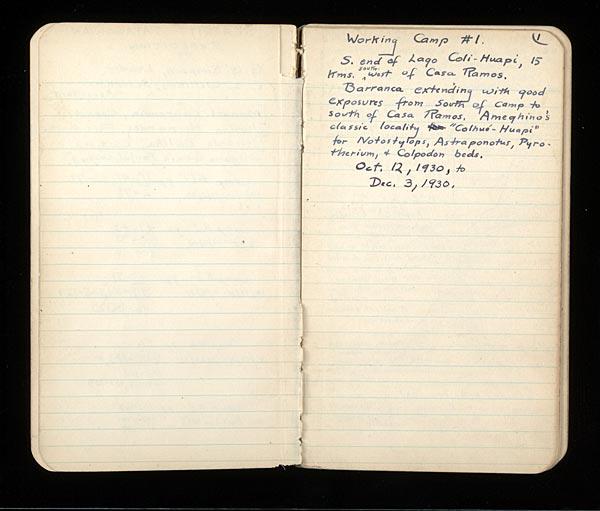 Working Camp #1.
1
S. end of Lago Coli-Huapi, 15
Kms. south west of Casa Ramos.
Barranca extending with good
exposures from South of camp to
south of Casa Ramos. Ameghino's
classic locality "Colhué-Huapi"
for Notostylops, Astraponotus, Pyro-
therium, & Colpodon beds.
Oct. 12, 1930, to
Dec. 3, 1930.